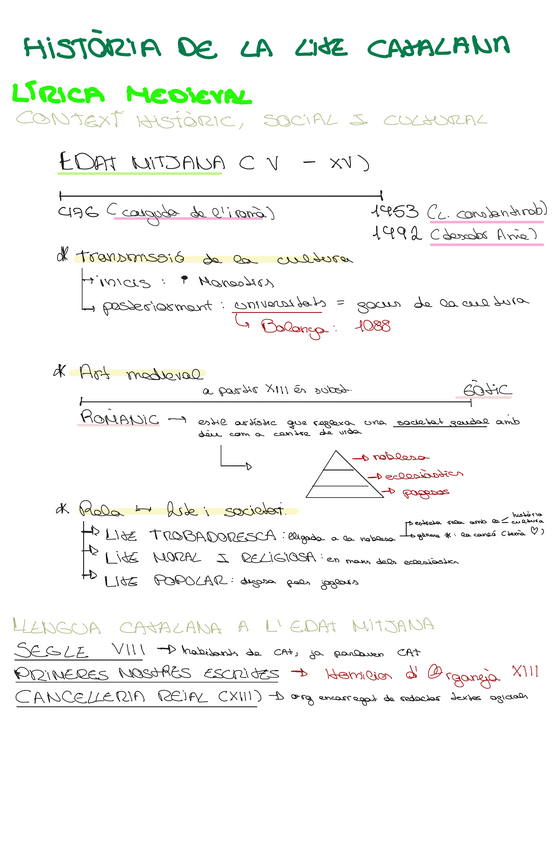 HISTÒRIA DE LA LITE CATALANA
LÍRICA MEDIEVAL
CONTEXT HISTÒRIC, SOCIAL I CULTURAL
EDAT MITJANA (V - XV)
496 (caiguda de l'imp. romà)
1453 (C. Constantinob)
1492 (descob Amè)
* transmssió de la cultura
→ inicis : Monestirs
→ posteriorment : universitats = focus de la cultura
→ Bolonya : 1088
* Art medieval
a partir XIII és subst.
GÒTIC
ROMÀNIC → estil artístic que reflexa una societat feudal amb
déu com a centre de vida
→ noblesa
→ eclesiàstics
→ pagesos
* Rela ↔ lite i societat.
→ LITE TROBADORESCA : lligada a la noblesa
→ estreta rela amb la < història
cultura
→ gènere * : la cançó (temà ♡)
→ LITE MORAL I RELIGIOSA : en mans dels eclesiàstics
→ LITE POPULAR : difosa pels joglars
LLENGUA CATALANA A L'EDAT MITJANA
SEGLE VIII → habitants de CAT, ja parlaven CAT
PRIMERES MOSTRES ESCRITES → Homilies d'Organyà XIII
CANCELLERIA REIAL (XIII) → org encarregat de redactar textos oficials